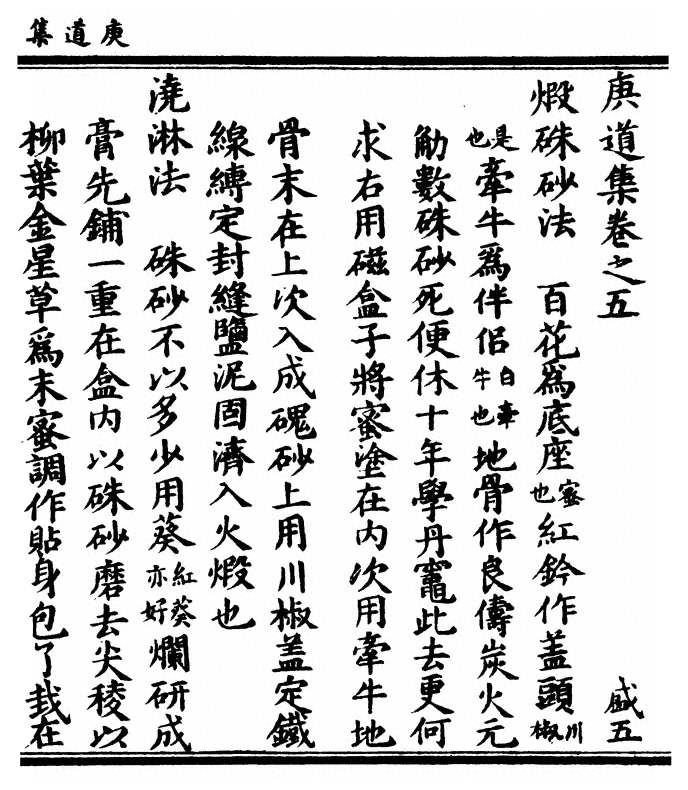 庚道集
庚道集卷之五　盛五
煅硃砂法　百花爲底座蜜也紅鈐作蓋頭川椒
是也牽牛爲伴侶白牽牛也地骨作良儔炭火元
觔數硃砂死便休十年學丹竈此去更何
求右用磁盒子將蜜塗在內次用牽牛地
骨末在上次入成磈砂上用川椒蓋定鐵
線縛定封縫鹽泥固濟入火煅也
澆淋法　硃砂不以多少用葵紅葵亦好爛研成
膏先鋪一重在盒內以硃砂磨去尖稜以
柳葉金星草爲末蜜調作貼身包了栽在